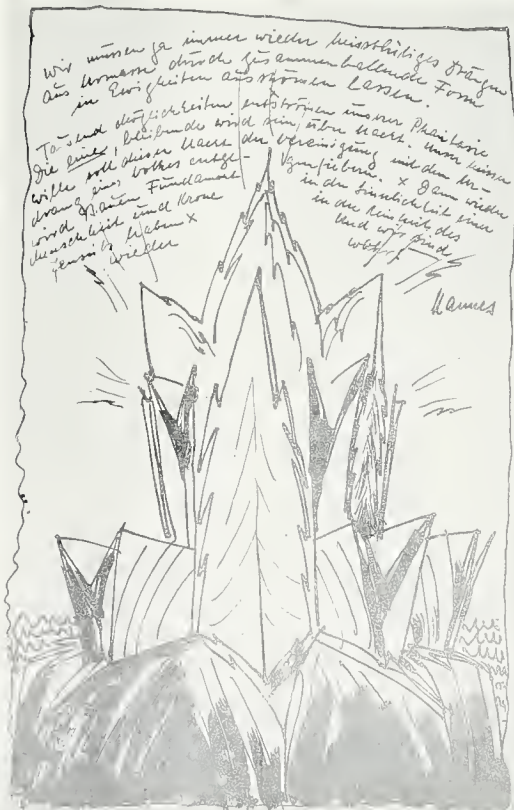 Wir müssen ja immer wieder heissblütiges Drängen
aus Urmasse durch zusammenballende Form
in Ewigkeiten ausströmen lassen.
Tausend Möglichkeiten entströmen unserer Phantasie
Die eine, bleibende wird sein über Nacht. Unser heisser
Wille soll dieser Nacht der Vereinigung mit dem Ur-
drang eines Volkes entge- genfiebern. x Dann wieder
wird Bauen Fundament in der Sinnlichkeit einer
Menschheit und Krone in der Reinheit des
Jenseits haben x Und wir sind
wieder
Hannes